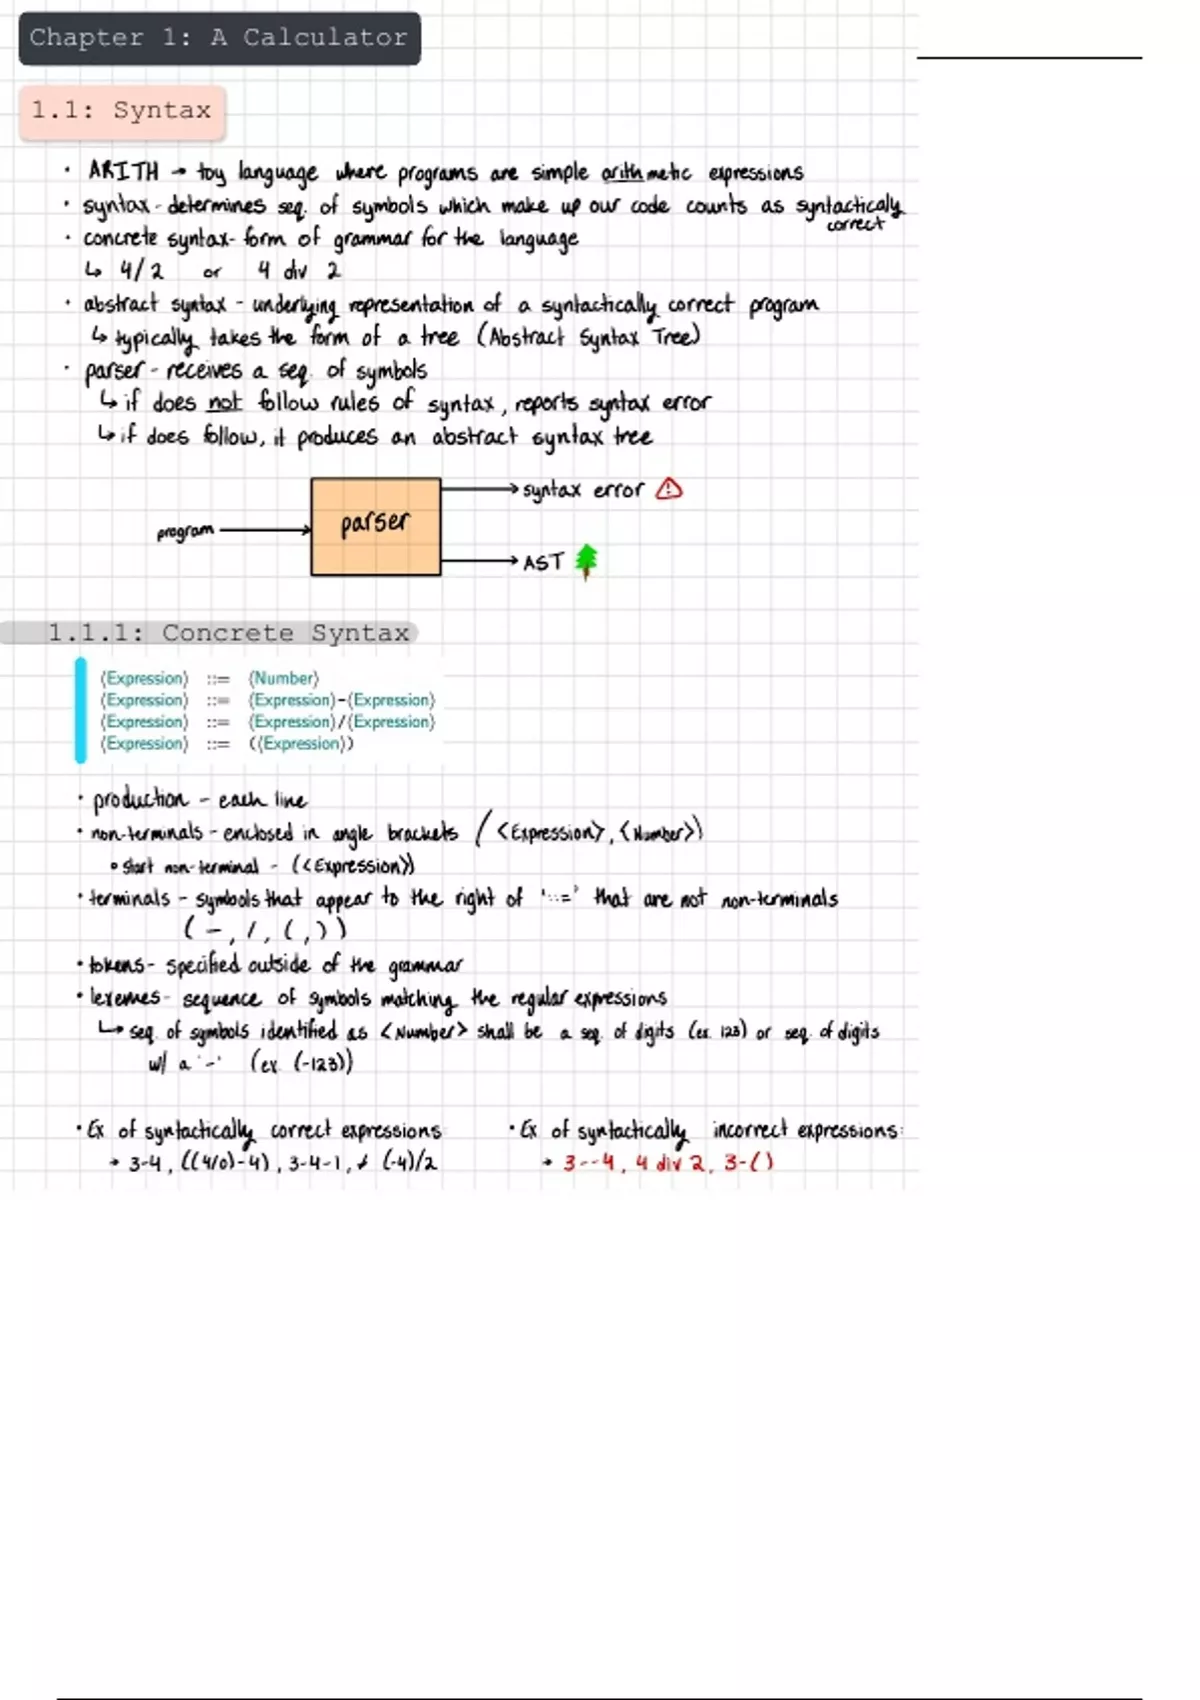 Chapter 1: A Calculator
1.1: Syntax
· ARITH → toy language where programs are simple arithmetic expressions
· syntax - determines seq. of symbols which make up our code counts as syntacticaly
correct
· concrete syntax - form of grammar for the language
↳ 4/2 or 4 div 2
· abstract syntax - underlying representation of a syntactically correct program
↳ typically takes the form of a tree (Abstract Syntax Tree)
· parser - receives a seq. of symbols
↳ if does not follow rules of syntax, reports syntax error
↳ if does follow, it produces an abstract syntax tree
syntax error
program
parser
AST
1.1.1: Concrete Syntax
⟨Expression⟩ ::= ⟨Number⟩
⟨Expression⟩ ::= ⟨Expression⟩-⟨Expression⟩
⟨Expression⟩ ::= ⟨Expression⟩/⟨Expression⟩
⟨Expression⟩ ::= (⟨Expression⟩)
· production - each line
· non-terminals - enclosed in angle brackets (<Expression>, <Number>)
∘ start non-terminal - (<Expression>)
· terminals - symbols that appear to the right of '::=' that are not non-terminals
( -, /, (, ) )
· tokens - specified outside of the grammar
· lexemes - sequence of symbols matching the regular expressions
↳ seq. of symbols identified as <Number> shall be a seq. of digits (ex. 123) or seq. of digits
w/ a '-' (ex. (-123))
· Ex of syntactically correct expressions
→ 3-4, ((4/0)-4), 3-4-1, + (-4)/2
· Ex of syntactically incorrect expressions:
→ 3--4, 4 div 2, 3-()